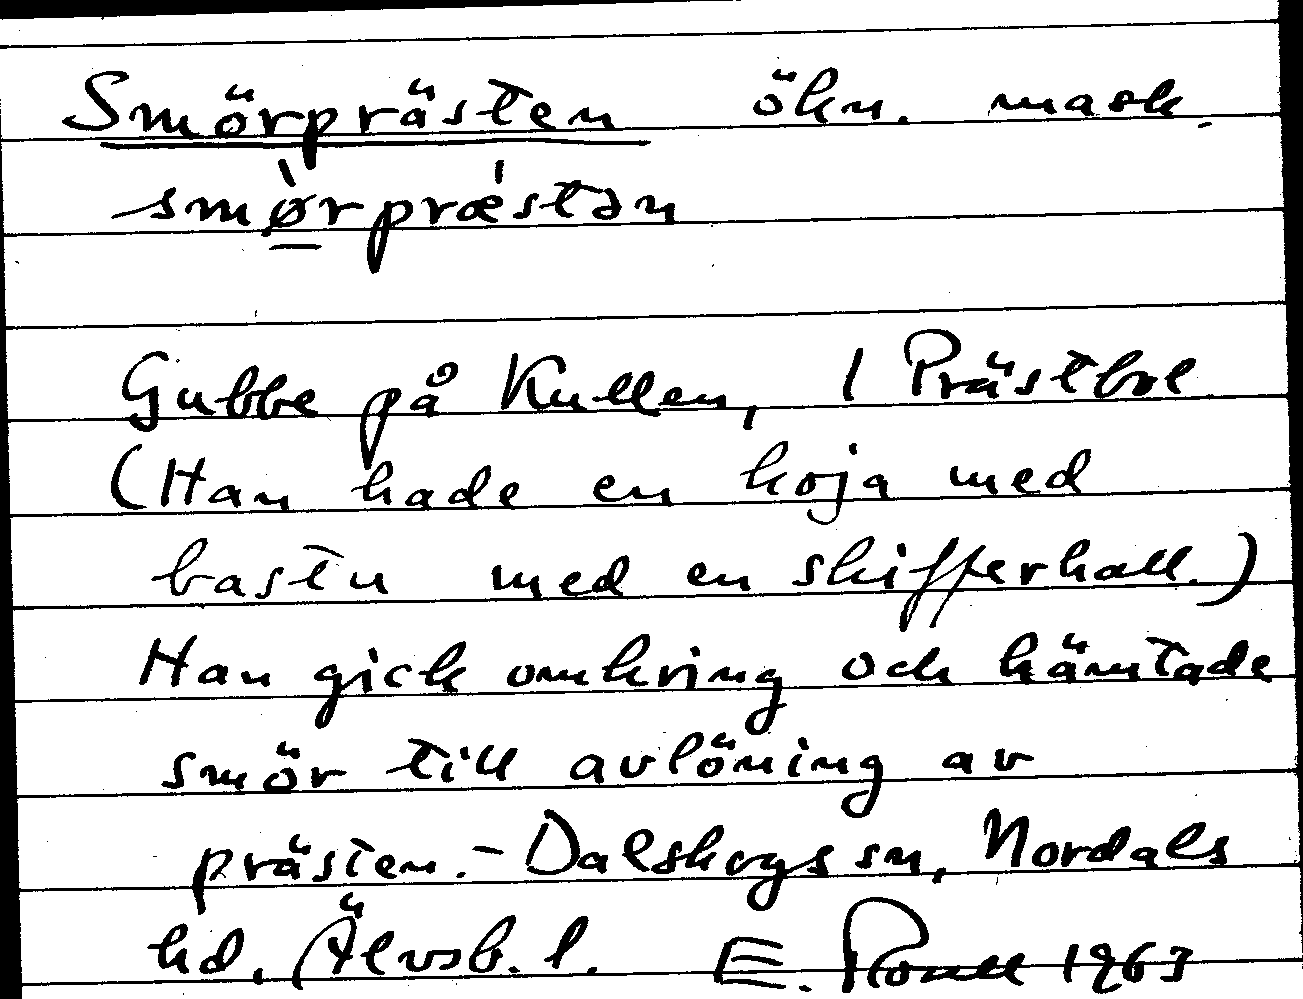 Smörprästen ökn. mask.
smø̀rprǽstən
Gubbe på Kullen, 1 Prästbol
(Han hade en koja med
bastu med en skifferhall.)
Han gick omkring och hämtade
smör till avlöning av
prästen. - Dalskogs sn, Nordals
hd. Älvsb. l. E. 1963